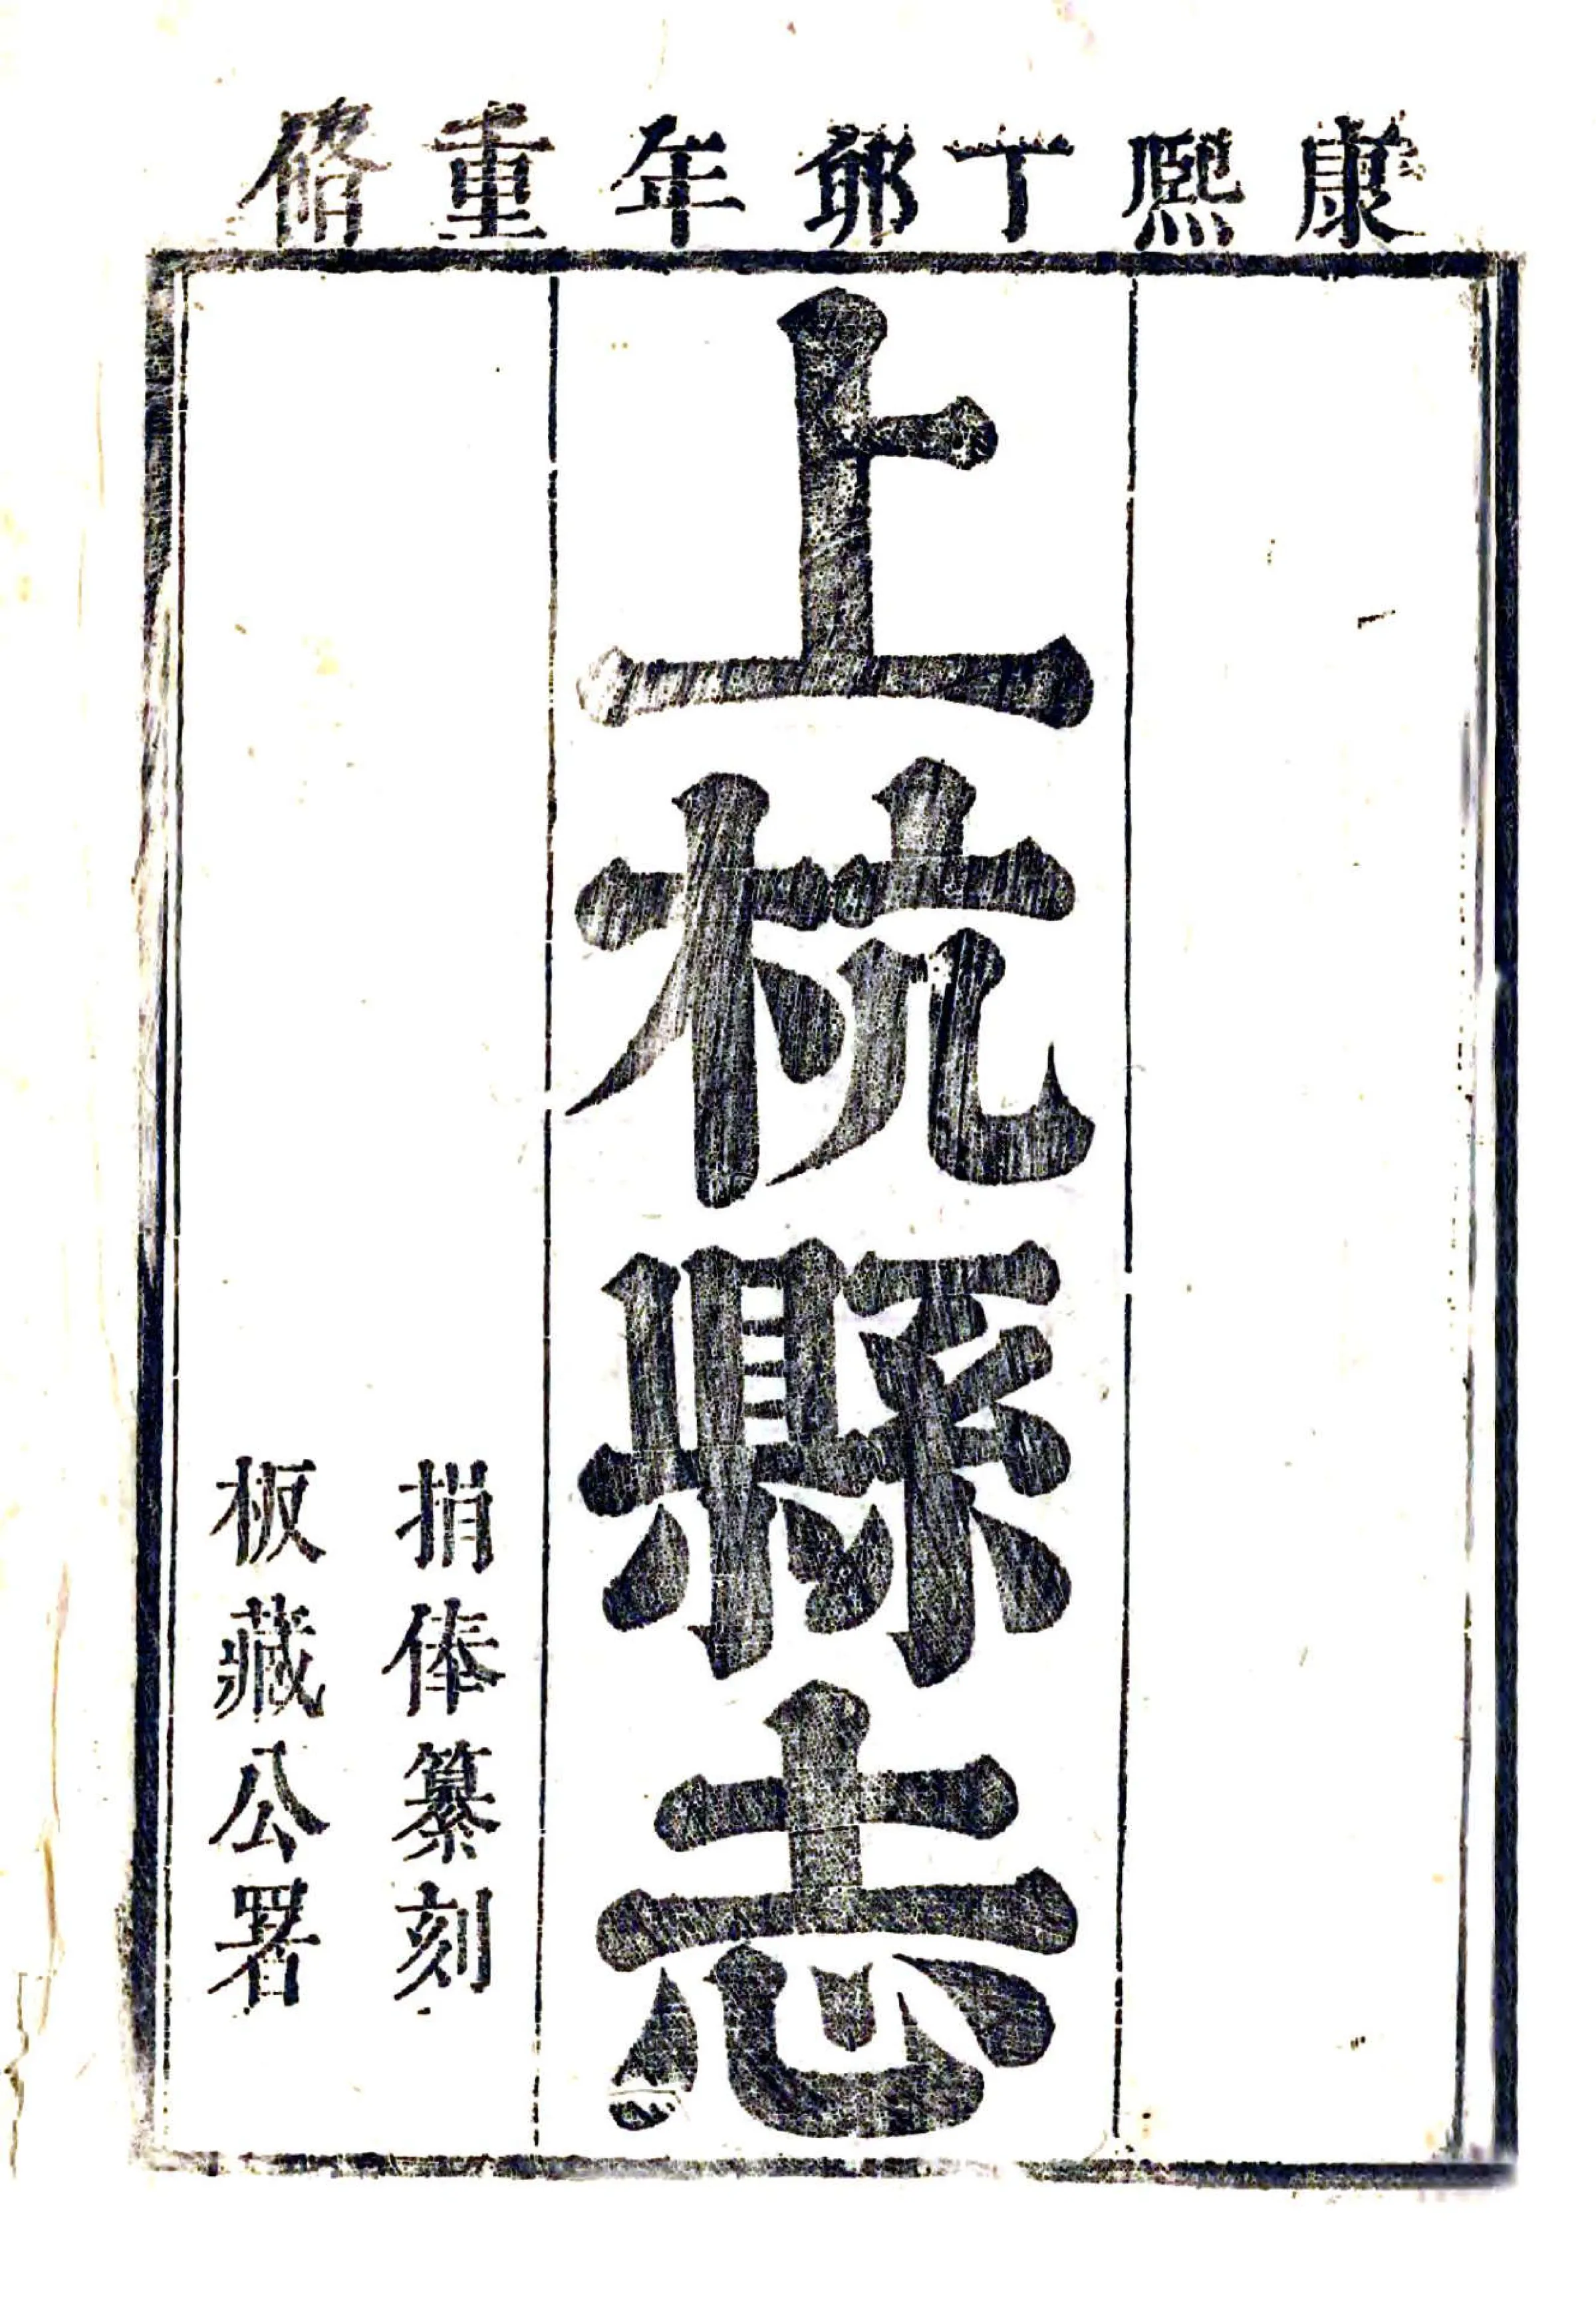 康熙丁卯年重脩
上杭縣志
捐俸纂刻
板藏公署